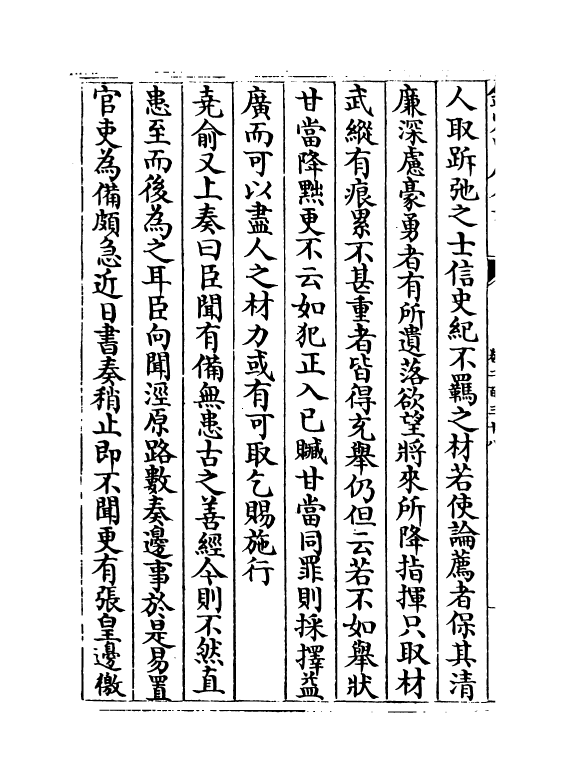 人取跅弛之士信史紀不羈之材若使論薦者保其清
廉深慮豪勇者有所遺落欲望將來所降指揮只取材
武縱有痕累不甚重者皆得充舉仍但云若不如舉狀
甘當降黜更不云如犯正入已贓甘當同罪則採擇益
廣而可以盡人之材力或有可取乞賜施行
堯俞又上奏曰臣聞有備無患古之善經今則不然直
患至而後為之耳臣向聞涇原路數奏邊事於是易置
官吏為備頗急近日書奏稍止即不聞更有張皇邊徼